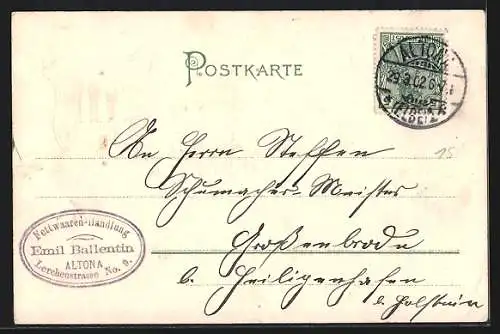 POSTKARTE
ALTONA
29.3.02.6-7
(ELBE)
15
An Herrn Steffen
Schumacher-Meister
Großenbrode
b. Heiligenhafen
i. Holstein
Fettwaaren-Handlung
Emil Ballentin
ALTONA
Lerchenstrasse No. 9.